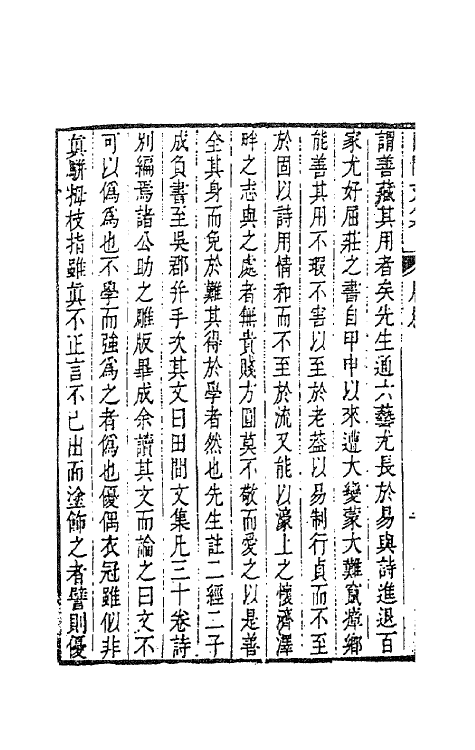 謂善藏其用者矣先生通六藝尤長於易與詩進退百
家尤好屈莊之書自甲申以來遭大變蒙大難竄瘴鄉
能善其用不瑕不害以至於老益以易制行貞而不至
於固以詩用情和而不至於流又能以濠上之懷濟澤
畔之志與之處者無貴賤方圓莫不敬而愛之以是善
全其身而免於難其得於學者然也先生註二經二子
成負書至吳郡幷手次其文曰田間文集凡三十卷詩
別編焉諸公助之雕版畢成余讀其文而論之曰文不
可以僞爲也不學而強爲之者僞也優偶衣冠雖似非
眞駢拇枝指雖眞不正言不已出而塗飾之者譬則優